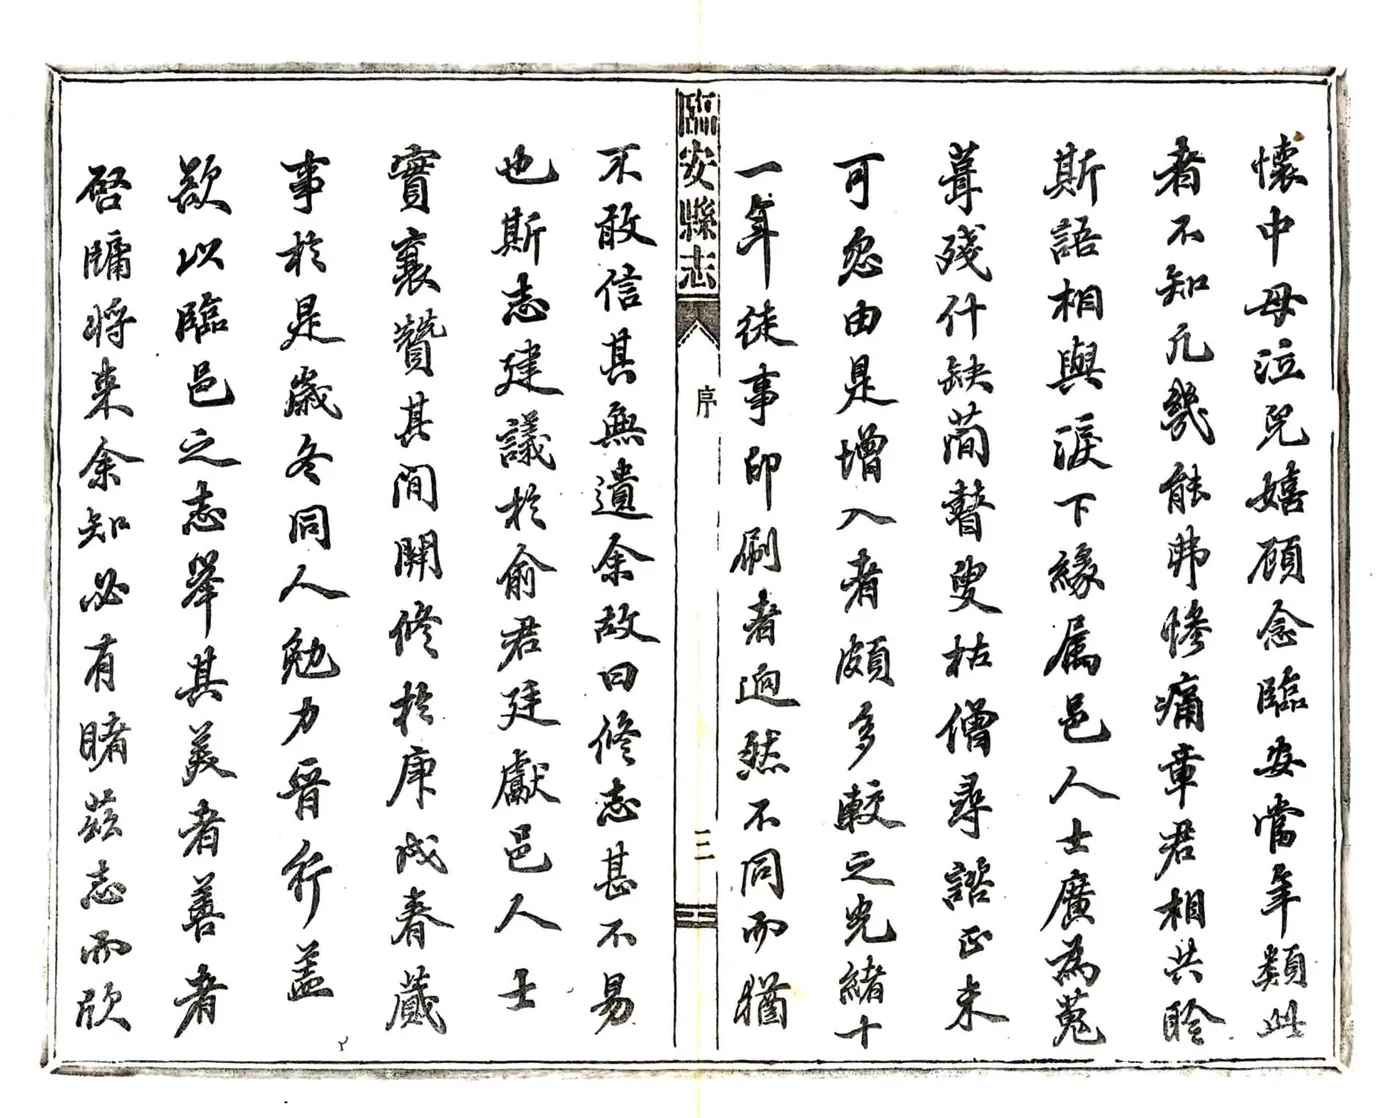 懷中母泣兒嬉顧念臨安當年類此
者不知凡幾能弗慘痛章君相共聆
斯語相與淚下緣属邑人士廣為蒐
葺殘什缺蕳瞽叟枯僧尋諮正未
可忽由是增入者頗多較之光緒十
一年徒事印刷者逈然不同而猶
臨安縣志
序
三
不敢信其無遺余故曰修志甚不易
也斯志建議於俞君廷獻邑人士
實襄贊其间開修於庚戌春蕆
事於是歲冬同人勉力晋行盖
欲以臨邑之志舉其美者善者
啓牖将来余知必有睹兹志而欣